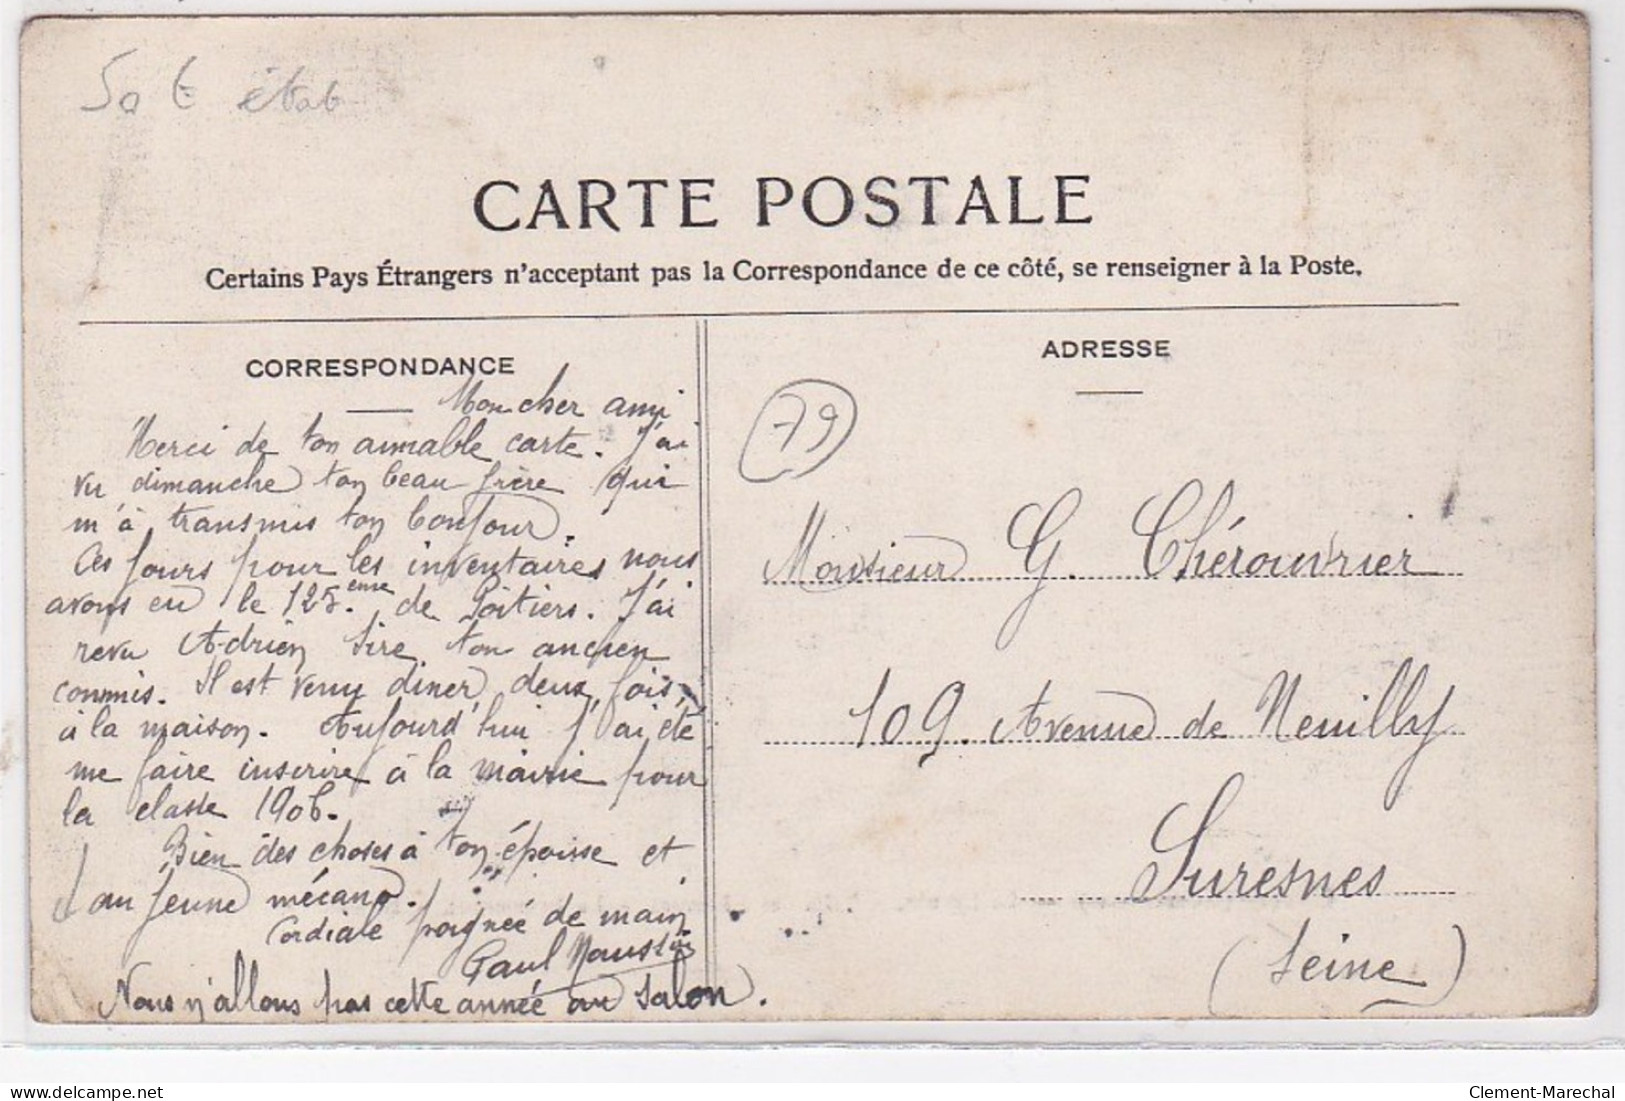 50 € état
CARTE POSTALE
Certains Pays Étrangers n'acceptant pas la Correspondance de ce côté, se renseigner à la Poste.
CORRESPONDANCE
Mon cher ami
Merci de ton aimable carte. J'ai
vu dimanche ton beau frère qui
m'à transmis ton bonjour.
Ces jours pour les inventaires nous
avons eu le 125.ème de Poitiers. J'ai
revu Adrien Sire ton ancien
commis. Il est venu diner deux fois
à la maison. Aujourd'hui j'ai été
me faire inscrire à la mairie pour
la classe 1906.
Bien des choses à ton épouse et
au jeune mécano.
Cordiale poignée de main
Paul
Nous n'allons pas cette année au Salon.
ADRESSE
79
Monsieur G. Chérouvrier
109. Avenue de Neuilly
Suresnes
(Seine)
Clement-Marechal
delcampe.net